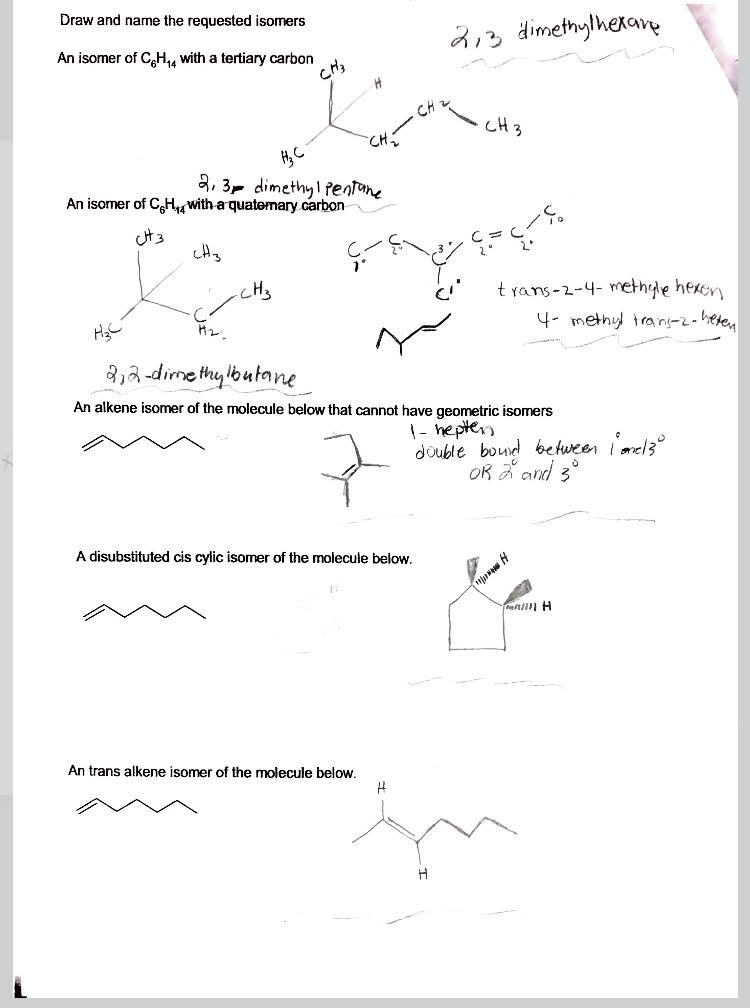 Draw and name the requested isomers
2,3 dimethylhexane
An isomer of C6H14 with a tertiary carbon
CH3
H
CH2
CH3
CH2
H3C
2,3- dimethyl Pentane
An isomer of C6H14 with a quaternary carbon
CH3
CH3
CH3
C
H2
H3C
C C C C = C C
1° 2° 3° 2° 2° 1°
C 1°
trans-2-4- methyle hexen
4- methyl trans-2-hexen
2,2-dimethylbutane
An alkene isomer of the molecule below that cannot have geometric isomers
1- hepten
double bound between 1° and 3°
OR 2° and 3°
A disubstituted cis cylic isomer of the molecule below.
H
H
An trans alkene isomer of the molecule below.
H
H